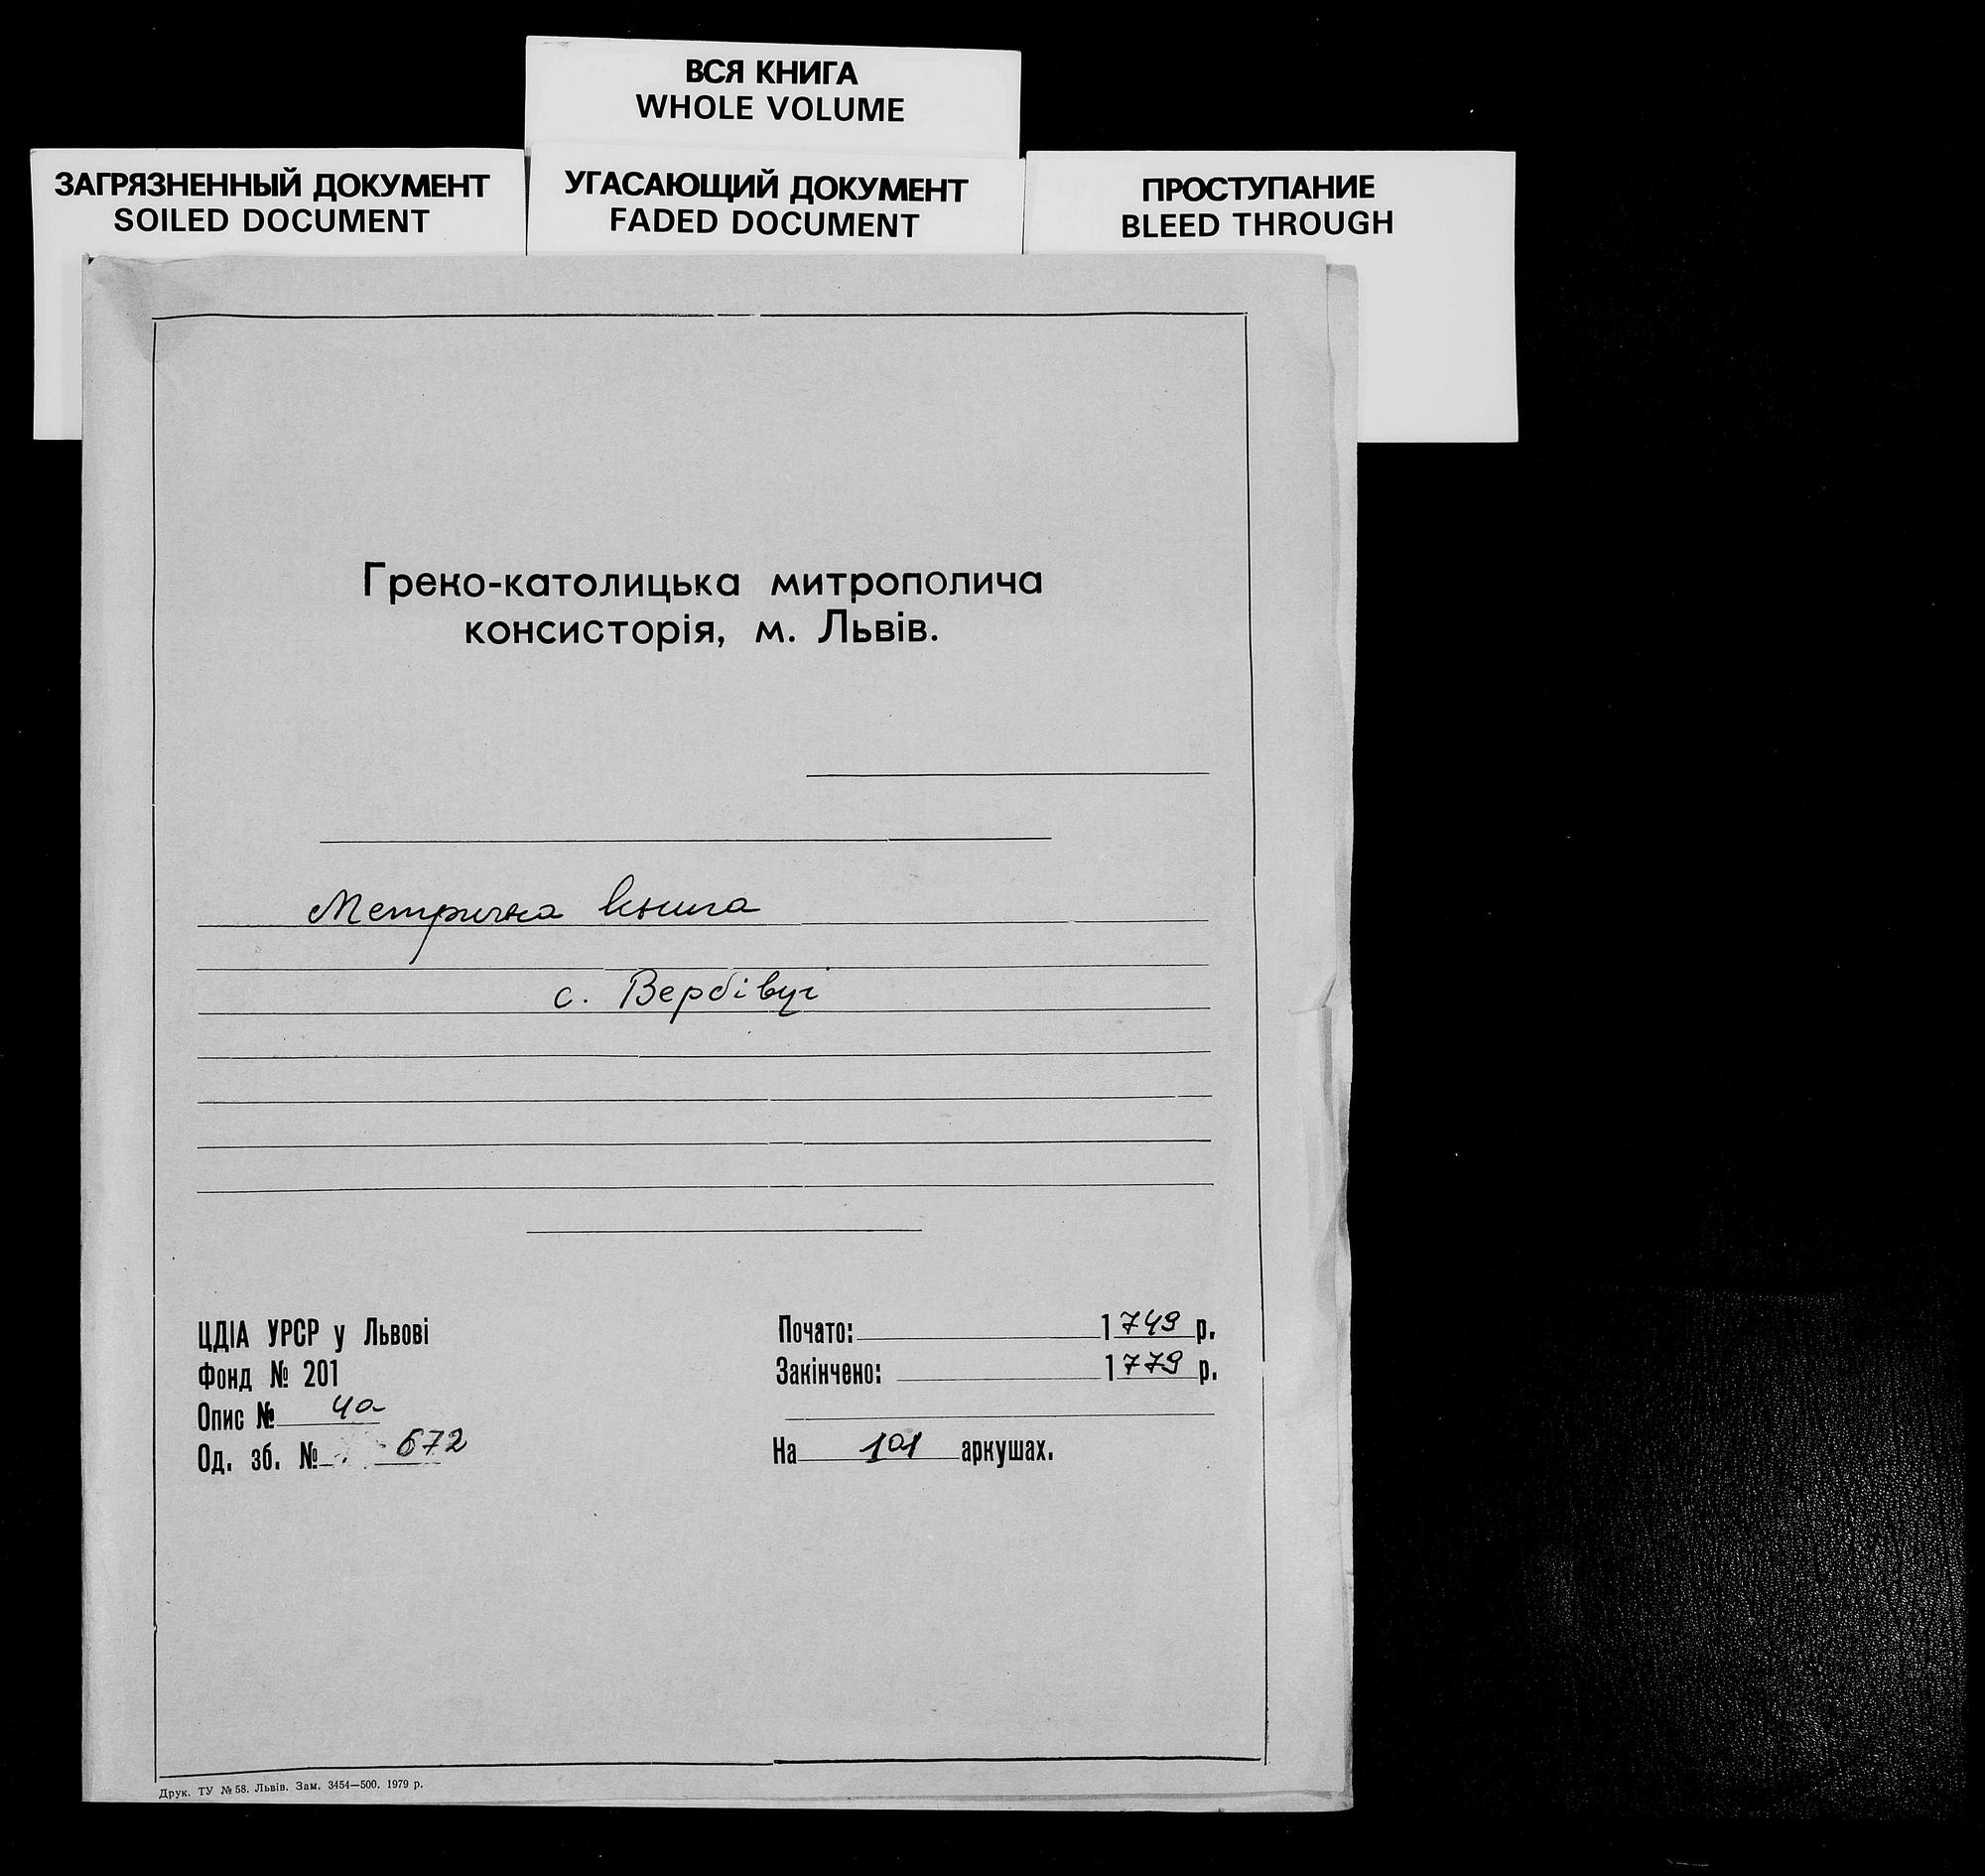 ВСЯ КНИГА
WHOLE VOLUME
ЗАГРЯЗНЕННЫЙ ДОКУМЕНТ
SOILED DOCUMENT
УГАСАЮЩИЙ ДОКУМЕНТ
FADED DOCUMENT
ПРОСТУПАНИЕ
BLEED THROUGH
Греко-католицька митрополича
консисторія, м. Львів.
Метрична книга
с. Вербівці
ЦДІА УРСР у Львові
Фонд № 201
Опис № 4а
Од. зб. № 672
Почато: 1749 р.
Закінчено: 1779 р.
На 101 аркушах.
Друк. ТУ № 58. Львів. Зам. 3454—500. 1979 р.